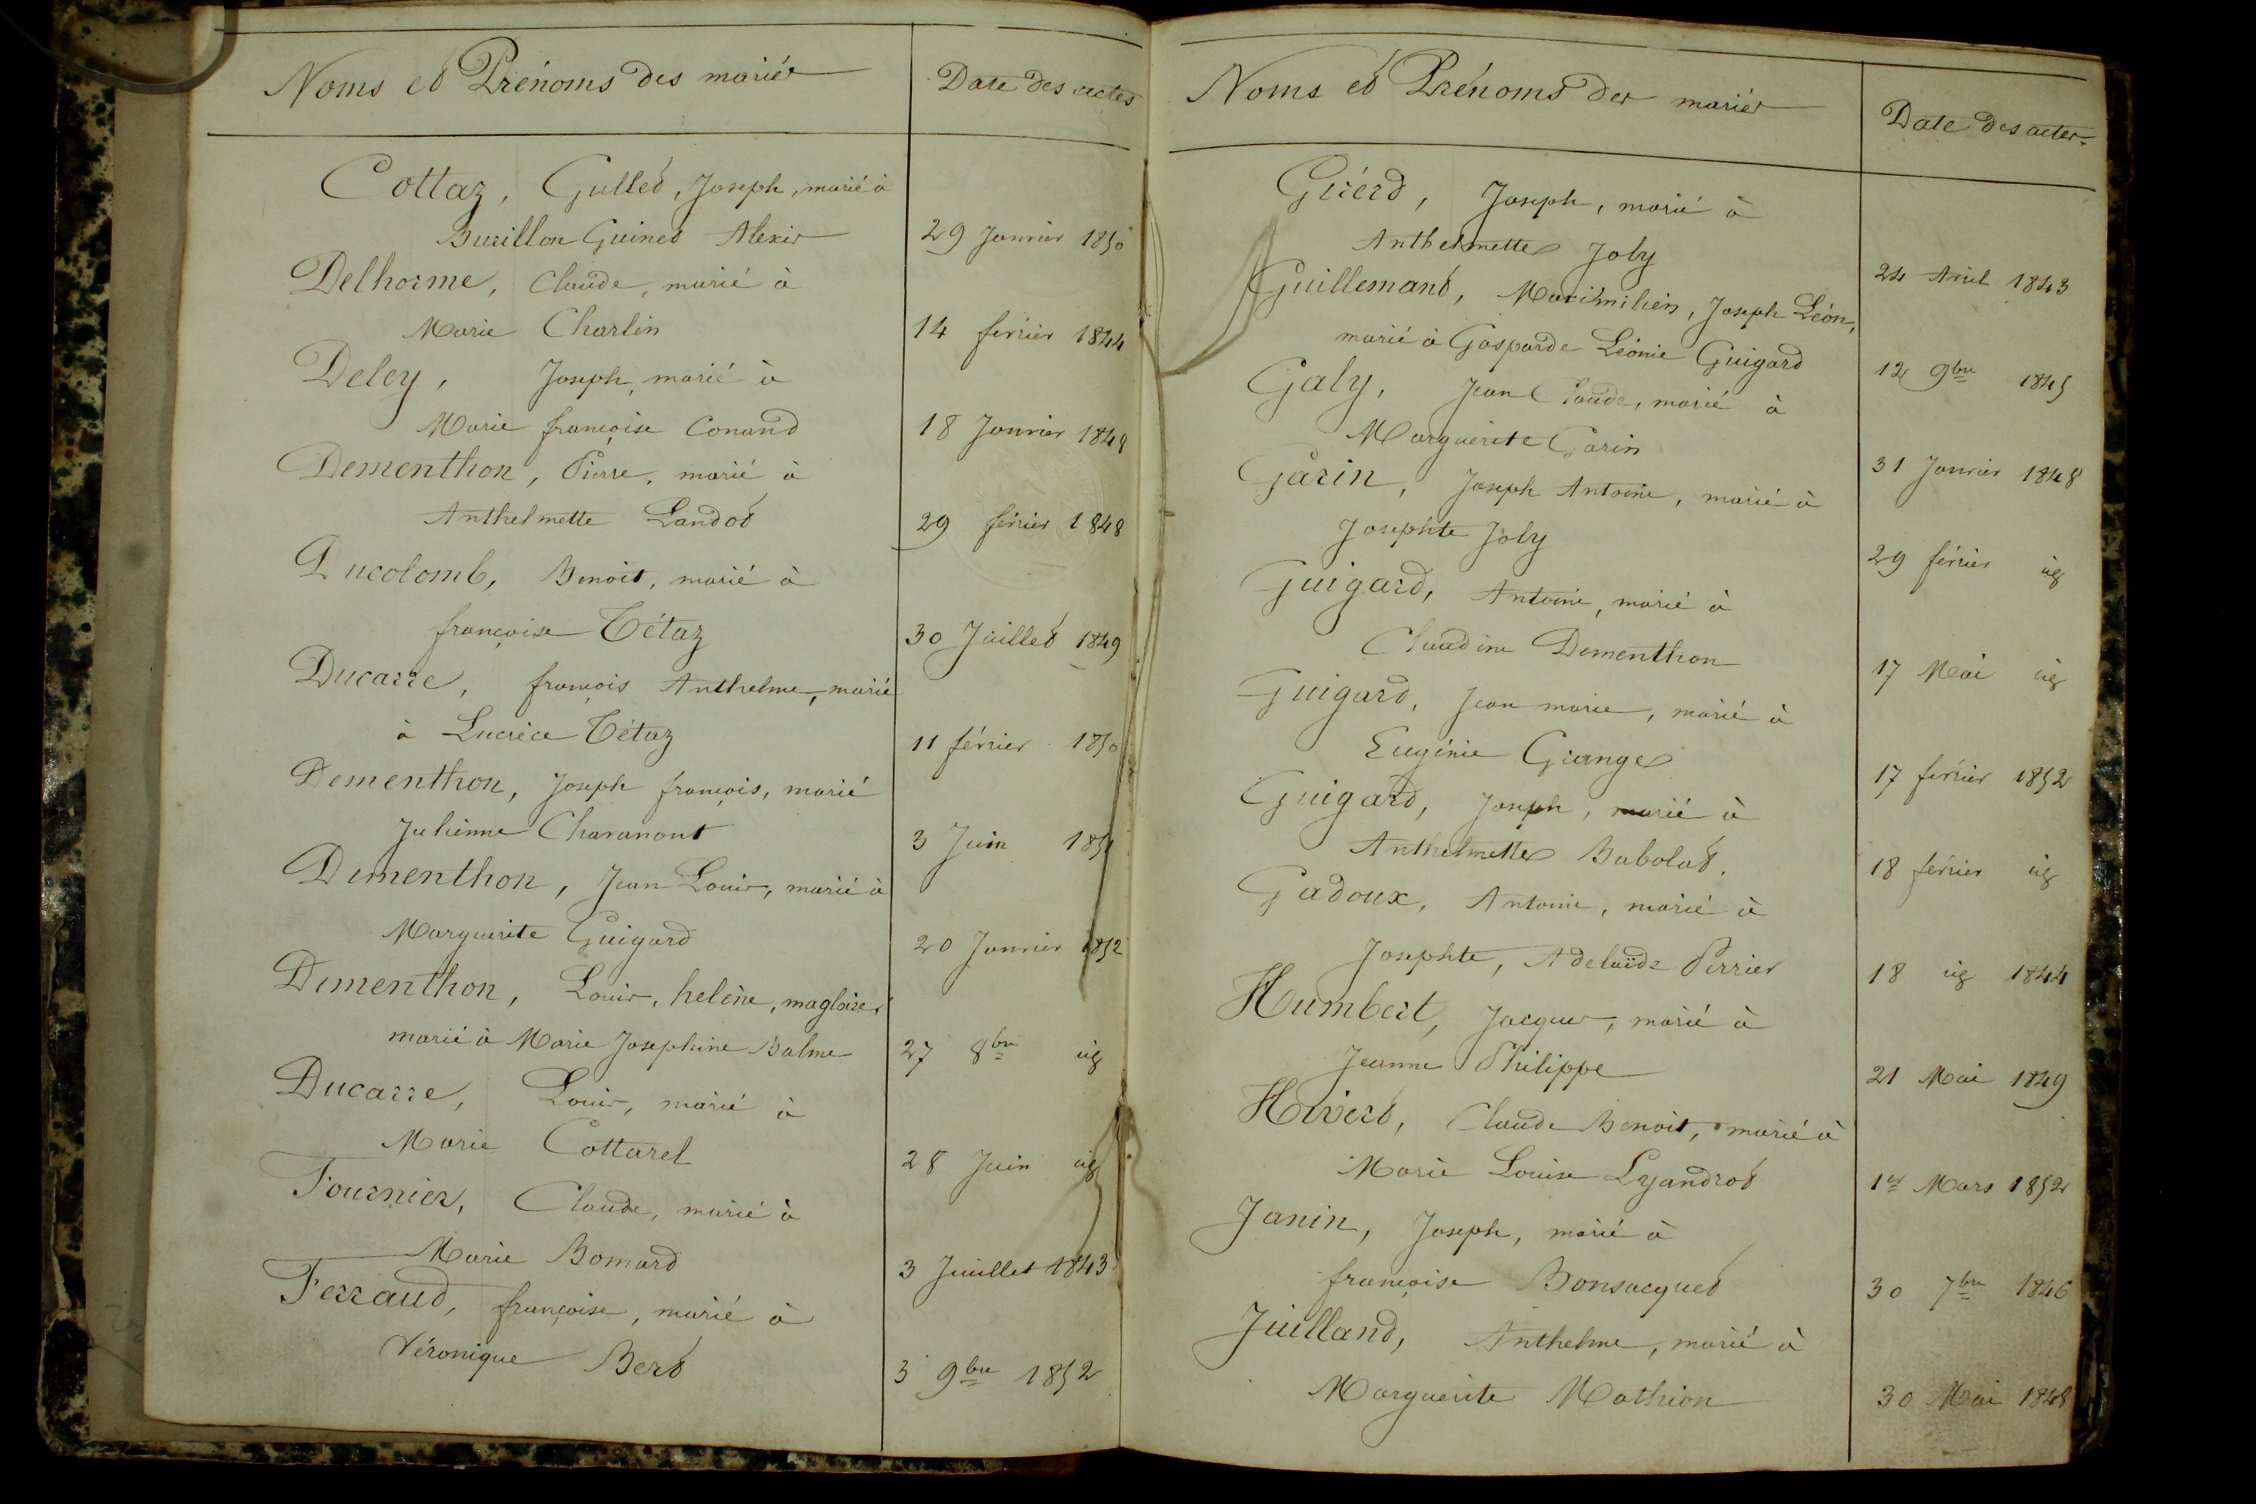 Noms et Prénoms des mariés
Date des actes
Cottaz, Gullet, Joseph, marié à
Burillon Guinet Alexis
29 Janvier 1850
Delhorme, Claude, marié à
Marie Charlin
14 février 1844
Deley, Joseph, marié à
Marie françoise Conand
18 Janvier 1848
Dementhon, Pierre, marié à
Anthelmette Landot
29 février 1848
Ducolomb, Benoit, marié à
françoise Tétaz
30 Juillet 1849
Ducarre, françois Anthelme, marié
à Lucrèce Tétaz
11 février 1850
Dementhon, Joseph françois, marié
Julienne Charanont
3 Juin 1851
Dementhon, Jean Louis, marié à
Marguerite Guigard
20 Janvier 1852
Dementhon, Louis, helène, magloire,
marié à Marie Josephine Balme
27 8bre
Ducarre, Louis, marié à
Marie Cottarel
28 Juin
Fournier, Claude, marié à
Marie Bomard
3 Juillet 1843
Ferraud, françoise, marié à
Véronique Bert
3 9bre 1852
Noms et Prénoms des mariés
Date des actes
Girerd, Joseph, marié à
Anthelmette Joly
24 Avril 1843
Guillemant, Maximilien, Joseph Léon,
marié à Gasparde Léonie Guigard
12 9bre 1845
Galy, Jean Claude, marié à
Marguerite Garin
31 Janvier 1848
Garin, Joseph Antoine, marié à
Josephte Joly
29 février
Guigard, Antoine, marié à
Claudine Dementhon
17 Mai
Guigard, Jean marie, marié à
Eugénie Grange
17 février 1852
Guigard, Joseph, marié à
Anthelmette Babolat.
18 février
Gadoux, Antoine, marié à
Josephte, Adelaïde Perrier
18 1844
Humbert, Jacques, marié à
Jeanne Philippe
21 Mai 1849
Hivert, Claude Benoit, marié à
Marie Louise Lyandrot
1er Mars 1852
Janin, Joseph, marié à
françoise Bonsacquet
30 7bre 1846
Juilland, Anthelme, marié à
Marguerite Mathion
30 Mai 1848